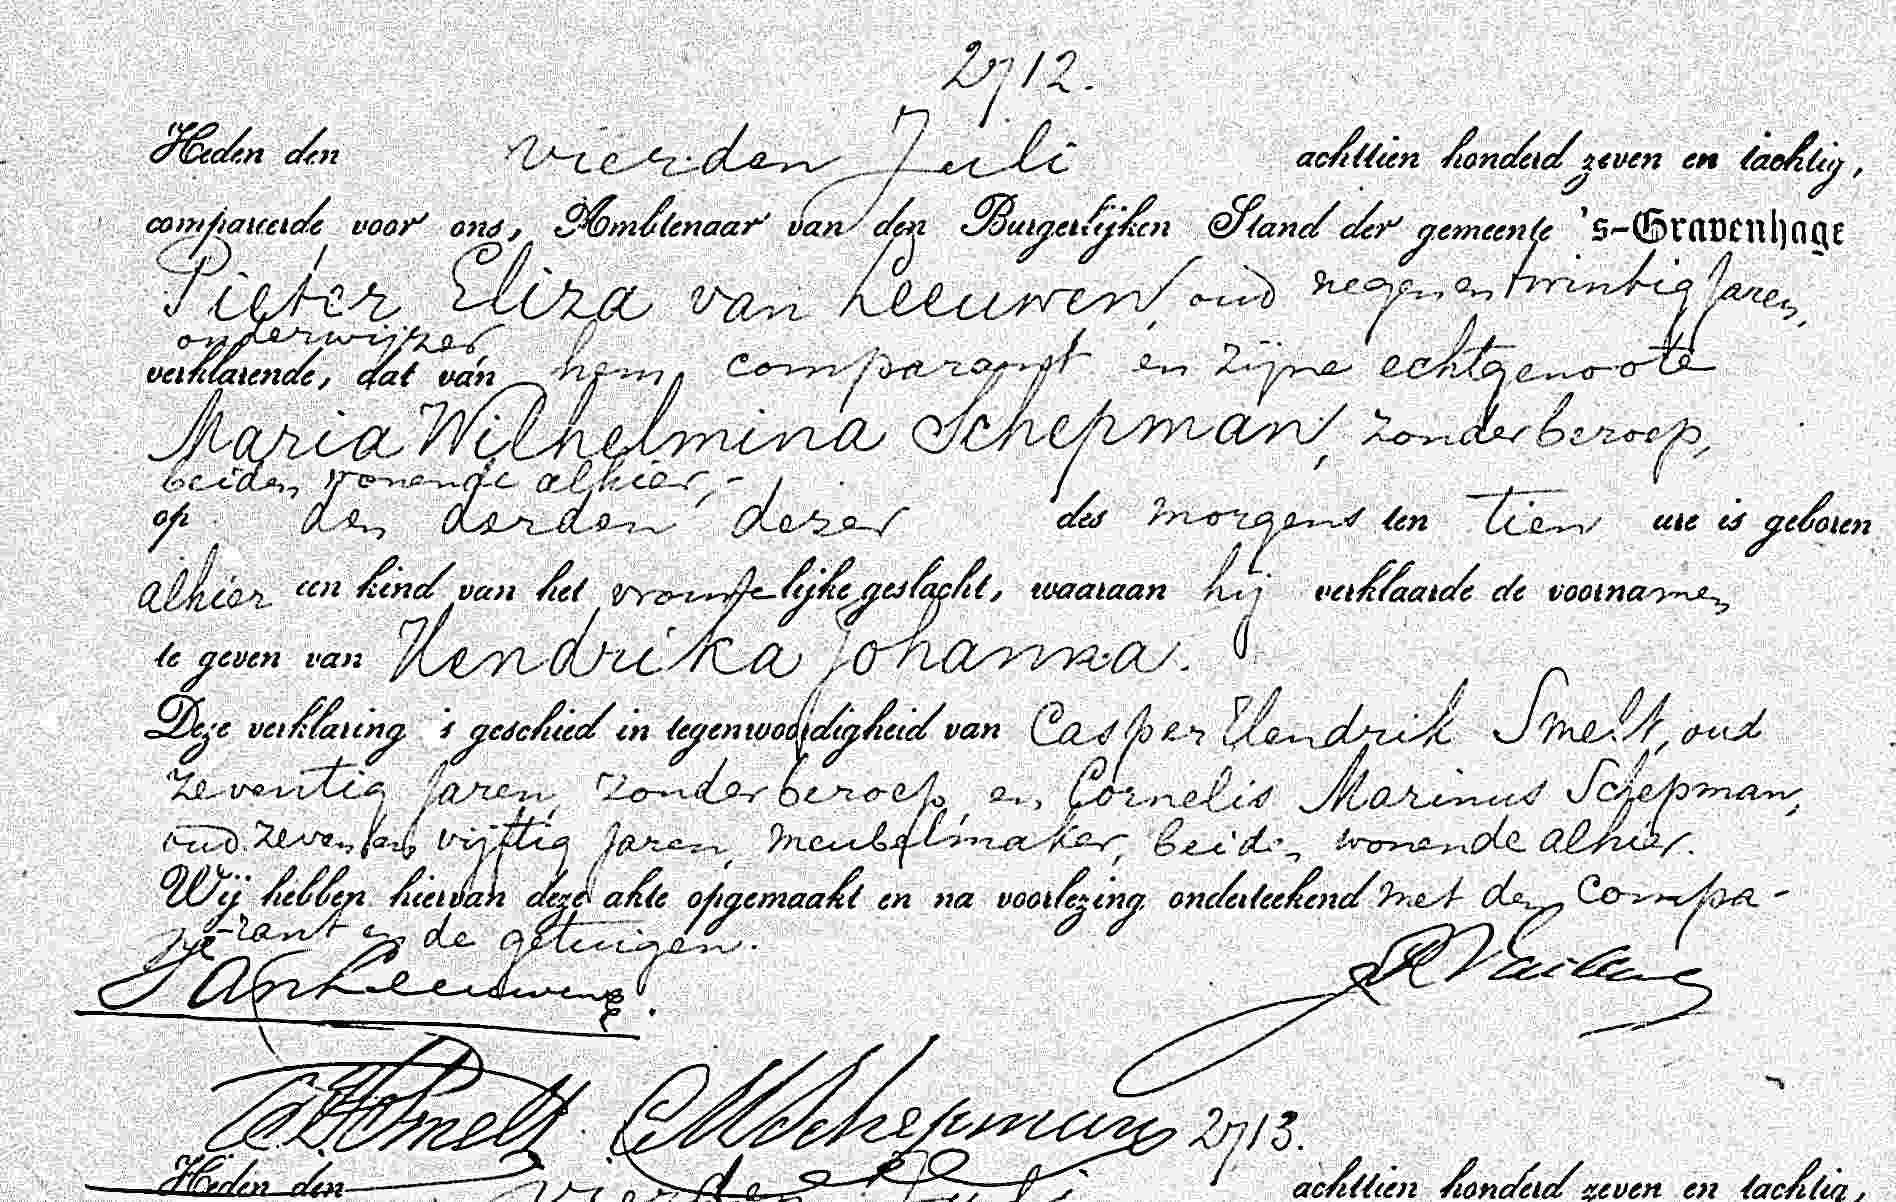 2712.
Heden den vierden Juli achttien honderd zeven en tachtig,
compareerde voor ons, Ambtenaar van den Burgerlijken Stand der gemeente 's-Gravenhage
Pieter Eliza van Leeuwen, oud negenentwintig Jaren,
onderwijzer,
verklarende, dat van hem comparant en zijne echtgenoote
Maria Wilhelmina Schepman, zonder beroep,
beiden wonende alhier,-
op den derden dezer des morgens ten tien ure is geboren
alhier een kind van het vrouwelijke geslacht, waaraan hij verklaarde de voornamen
te geven van Hendrika Johanna.
Deze verklaring is geschied in tegenwoordigheid van Casper Hendrik Smelt, oud
zeventig Jaren, zonder beroep, en Cornelis Marinus Schepman,
oud zeven en vijftig Jaren, meubelmaker, beiden wonende alhier.
Wij hebben hiervan deze akte opgemaakt en na voorlezing onderteekend met den compa-
rant en de getuigen.
van Leeuwen
CHSmelt CMSchepman 2713.
Heden den vierden Juli achttien honderd zeven en tachtig,